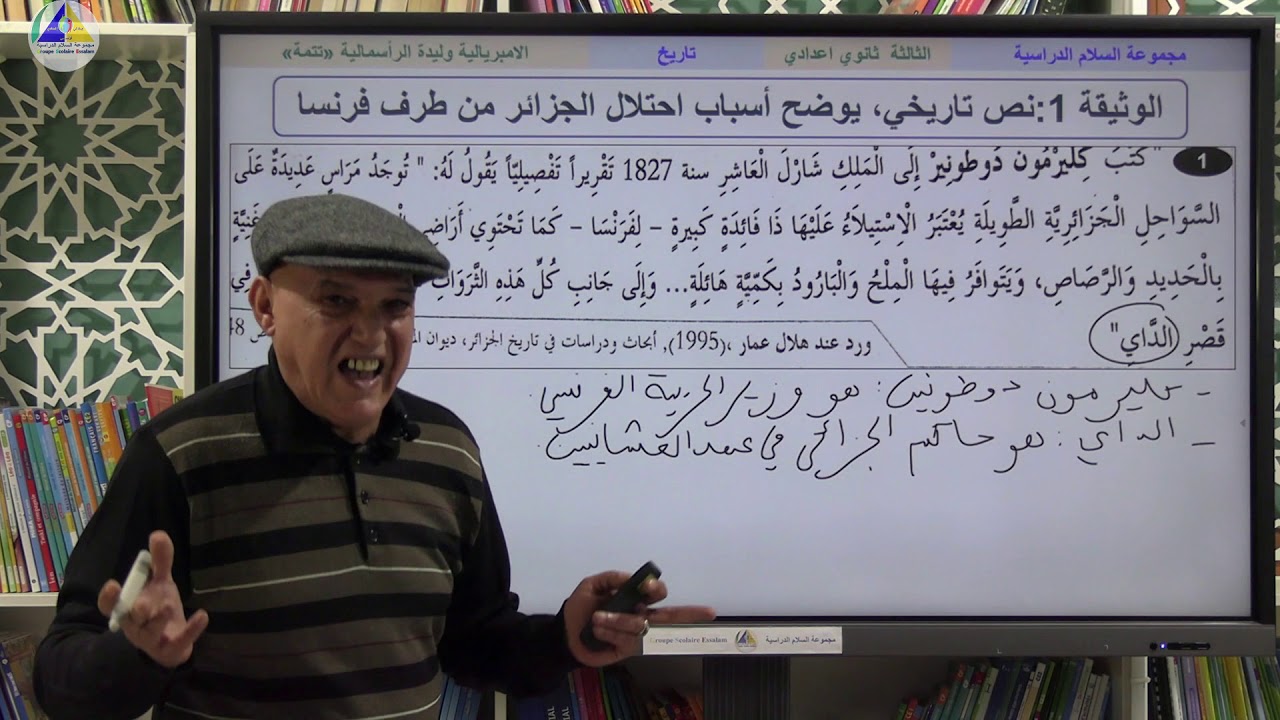 مجموعة السلام الدراسية
Groupe Scolaire Essalam
مجموعة السلام الدراسية الثالثة ثانوي اعدادي تاريخ الامبريالية وليدة الرأسمالية «تتمة»
الوثيقة 1:نص تاريخي، يوضح أسباب احتلال الجزائر من طرف فرنسا
1 "كَتَبَ كْلِيرْمُون دَوطونِيرْ إِلَى الْمَلِكِ شَارْلَ الْعَاشِرِ سنة 1827 تَقْرِيراً تَفْصِيلِيّاً يَقُولُ لَهُ: " تُوجَدُ مَرَاسٍ عَدِيدَةٌ عَلَى
السَّوَاحِلِ الْجَزَائِرِيَّةِ الطَّوِيلَةِ يُعْتَبَرُ الْاِسْتِيلاَءُ عَلَيْهَا ذَا فَائِدَةٍ كَبِيرَةٍ – لِفَرَنْسَا – كَمَا تَحْتَوِي أَرَاضِي غَنِيَّةٍ
بِالْحَدِيدِ وَالرَّصَاصِ، وَيَتَوَافَرُ فِيهَا الْمِلْحُ وَالْبَارُودُ بِكَمِيَّةٍ هَائِلَةٍ... وَإِلَى جَانِبِ كُلِّ هَذِهِ الثَّرَوَاتِ فِي
قَصْرِ الدَّايِ"
ورد عند هلال عمار ،(1995), أبحاث ودراسات في تاريخ الجزائر، ديوان ص 48
- كليرمون دوطونير: هو وزير الحربية الفرنسي.
- الداي: هو حاكم الجزائر في عهد العثمانيين.
Groupe Scolaire Essalam مجموعة السلام الدراسية